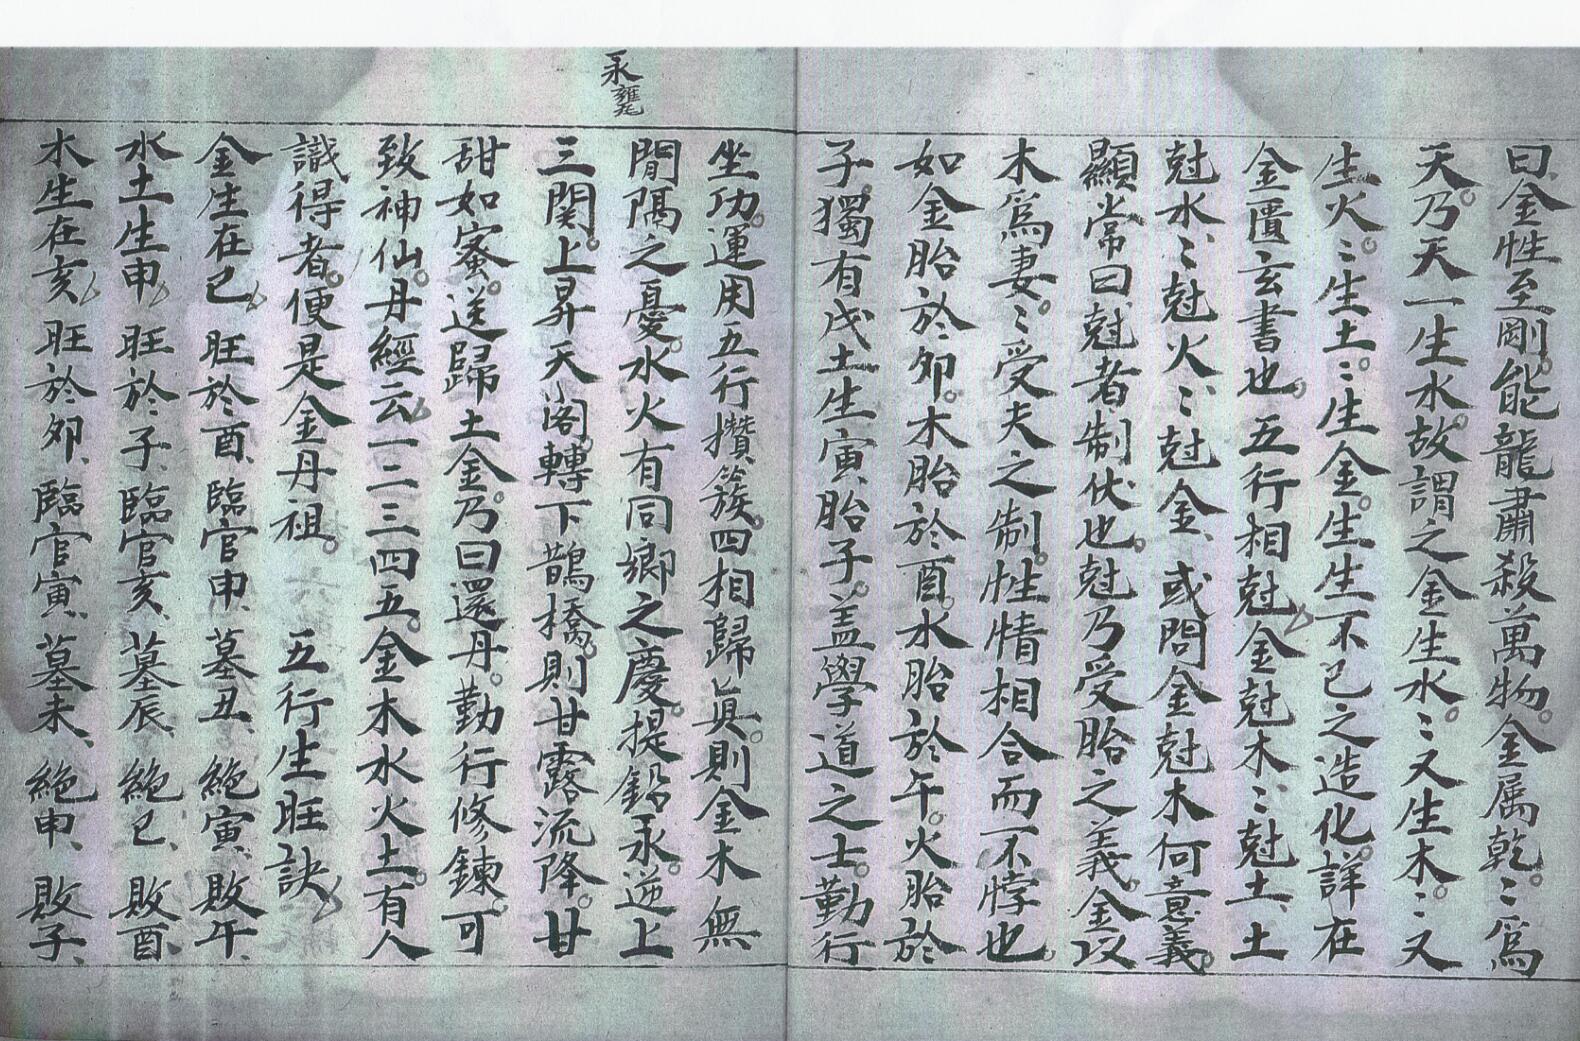 曰金性至剛。能龍肅殺萬物。金属乾。〻爲
天。乃天一生水。故謂之金生水。〻又生木。〻又
生火。〻生土。〻生金。生生不已之造化。詳在
金匱玄書也。五行相尅。金尅木。〻尅土、土
尅水。〻尅火。〻尅金、或問金尅木何意義。
顯常曰尅者制伏也。尅乃受胎之義。金以
木爲妻。〻受夫之制。性情相合而不悖也。
如金胎於卯。木胎於酉。水胎於午。火胎於
子。獨有戊土生寅、胎子。盖學道之士。勤行
永
坐功。運用五行攢簇。四相歸眞。則金木無
間隔之憂。水火有同鄉之慶。提鉛永。逆上
三関。上昇天閣。轉下鵲橋。則甘露流降。甘
甜如蜜。送歸土金。乃曰還丹。勤行修鍊。可
致神仙。丹經云一二三四五。金木水火土。有人
識得者。便是金丹祖。 五行生旺訣
金生在巳 旺於酉、臨官申、墓丑、絶寅、敗午、
水土生申 旺於子、臨官亥、墓辰、絶巳、敗酉、
木生在亥 旺於卯、臨官寅、墓未、絶申、敗子、